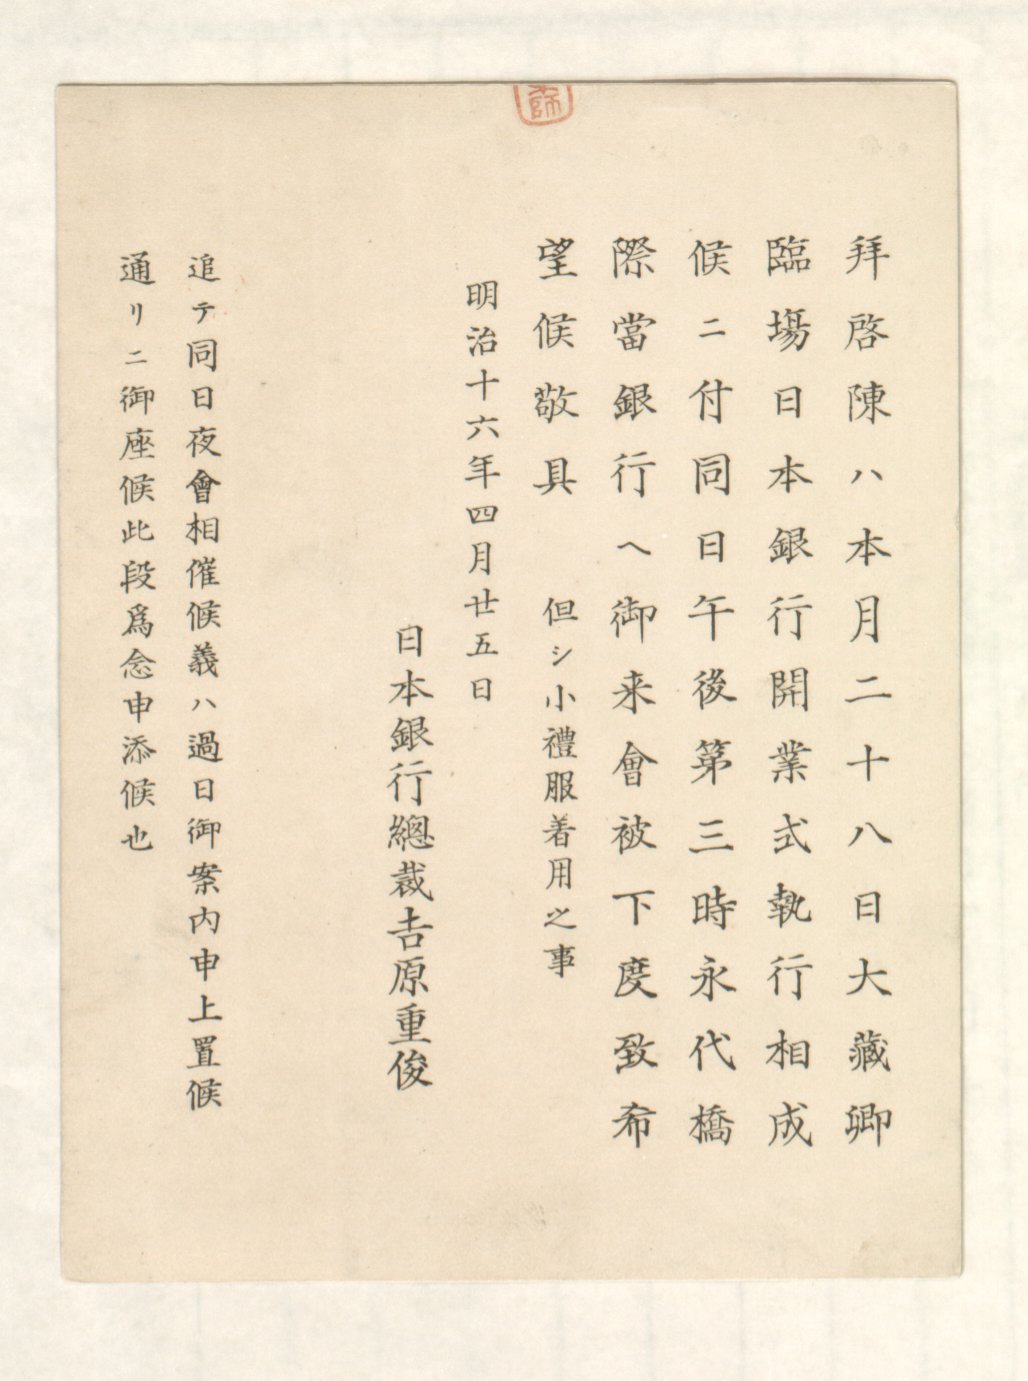 拜啓陳ハ本月二十八日大藏卿
臨塲日本銀行開業式執行相成
候ニ付同日午後第三時永代橋
際當銀行へ御来會被下度致希
望候敬具 但シ小禮服着用之事
明治十六年四月廿五日
日本銀行總裁吉原重俊
追テ同日夜會相催候義ハ過日御案内申上置候
通リニ御座候此段爲念申添候也